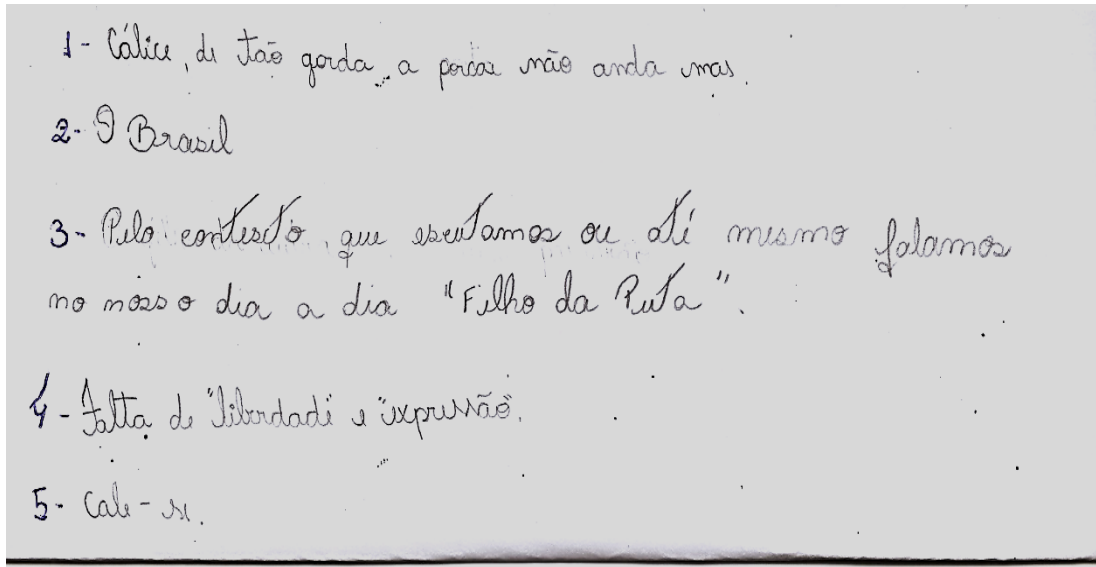 1- Cálice, de tão gorda, a porca não anda mas.
2- O Brasil
3- Pelo contexto, que escutamos ou até mesmo falamos
no nosso dia a dia "Filho da Puta".
4- Falta de "liberdade" e "expressão".
5- Cale-se.